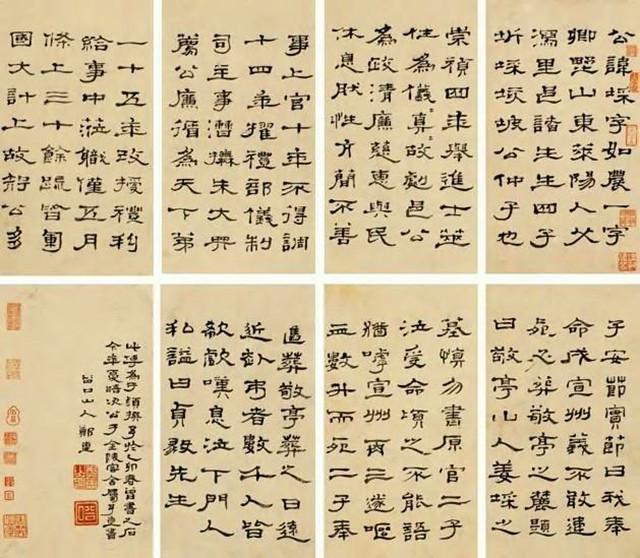 公諱埰字如農一字
卿墅山東萊陽人父
瀉里邑諸生生四子
圻埰垓坡公仲子也
崇禎四年舉進士筮
性為儀真故劇邑公
為政清廉慈惠與民
休息肰性方簡不善
事上官十年不得調
十四年擢禮部儀制
司主事漕撫朱大典
薦公廉循為天下第
一十五年改授禮科
給事中蒞職僅五月
條上三十餘疏皆軍
國大計上故解公多
子安節實節曰我奉
命戍宣州義不敢違
死必葬敬亭之麓題
曰敬亭山人姜埰之
墓慎勿書原官二子
泣受命頃之不能語
猶嘑宣州兩三遂嘔
血數升而死二子奉
匶葬敬亭葬之日遠
近赴弔者數千人皆
欷歔嘆息泣下門人
私謚曰貞毅先生
此傳為撰乙卯春曾書之石
今年夏晤次公于金陵寓舍屬予重書
谷口山人鄭